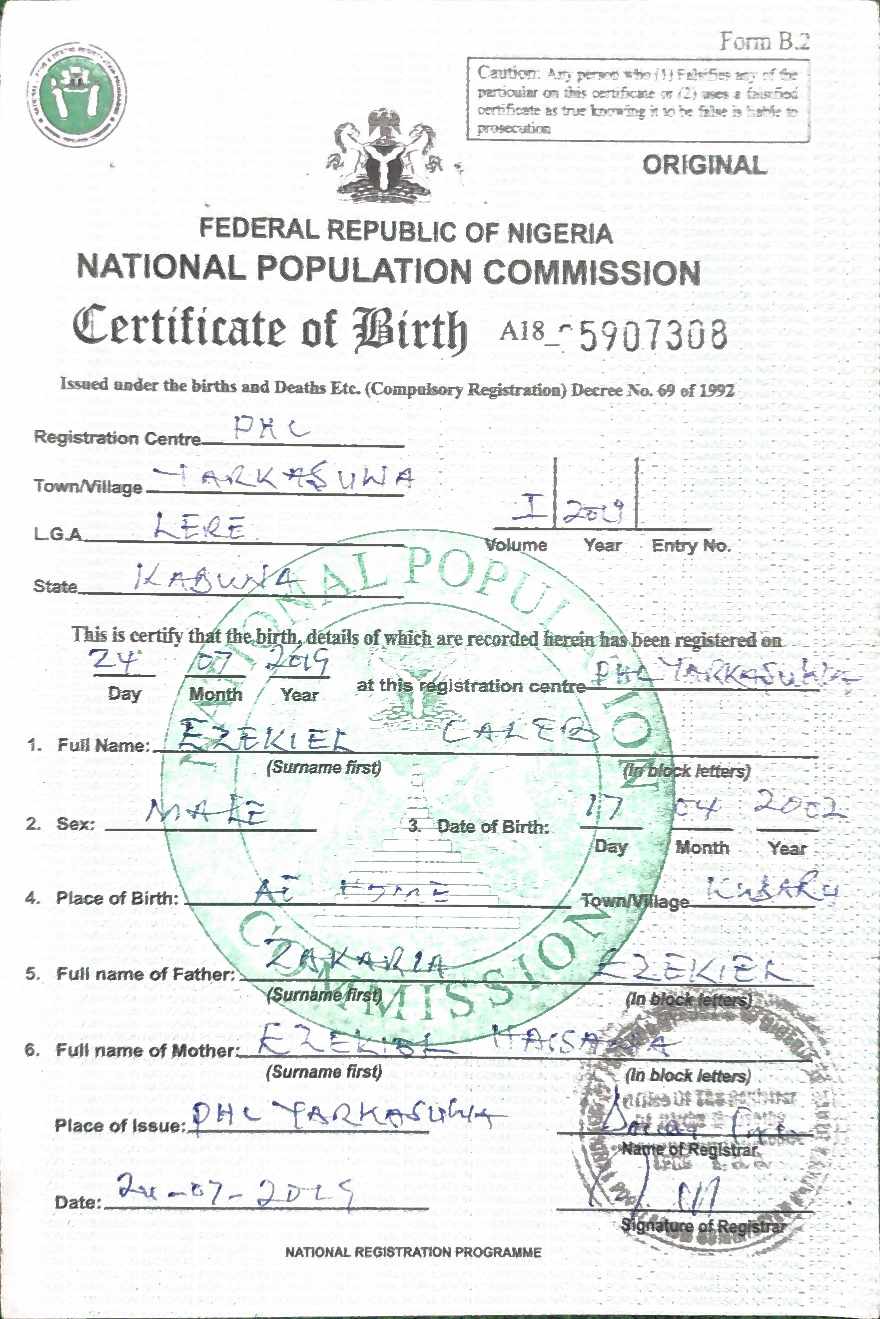 Form B.2
Caution: Any person who (1) Falsifies any of the
particular on this certificate or (2) uses a falsified
certificate as true knowing it to be false is liable to
prosecution
ORIGINAL
FEDERAL REPUBLIC OF NIGERIA
NATIONAL POPULATION COMMISSION
Certificate of Birth A18_ 5907308
Issued under the births and Deaths Etc. (Compulsory Registration) Decree No. 69 of 1992
Registration Centre PHC
Town/Village YARKASUWA
L.G.A. LERE
I 2019
Volume Year Entry No.
State KADUNA
NATIONAL POPULATION COMMISSION
This is certify that the birth, details of which are recorded herein has been registered on
24 07 2019 at this registration centre PHC YARKASUWA
Day Month Year
1. Full Name: EZEKIEL CALEB
(Surname first) (In block letters)
2. Sex: MALE 3. Date of Birth: 17 04 2002
Day Month Year
4. Place of Birth: AT HOME Town/Village KUBAKU
5. Full name of Father: ZAKARIA EZEKIEL
(Surname first) (In block letters)
6. Full name of Mother: EZEKIEL
(Surname first) (In block letters)
Place of Issue: PHC YARKASUWA
Name of Registrar
Date: 24-07-2019
Signature of Registrar
NATIONAL REGISTRATION PROGRAMME